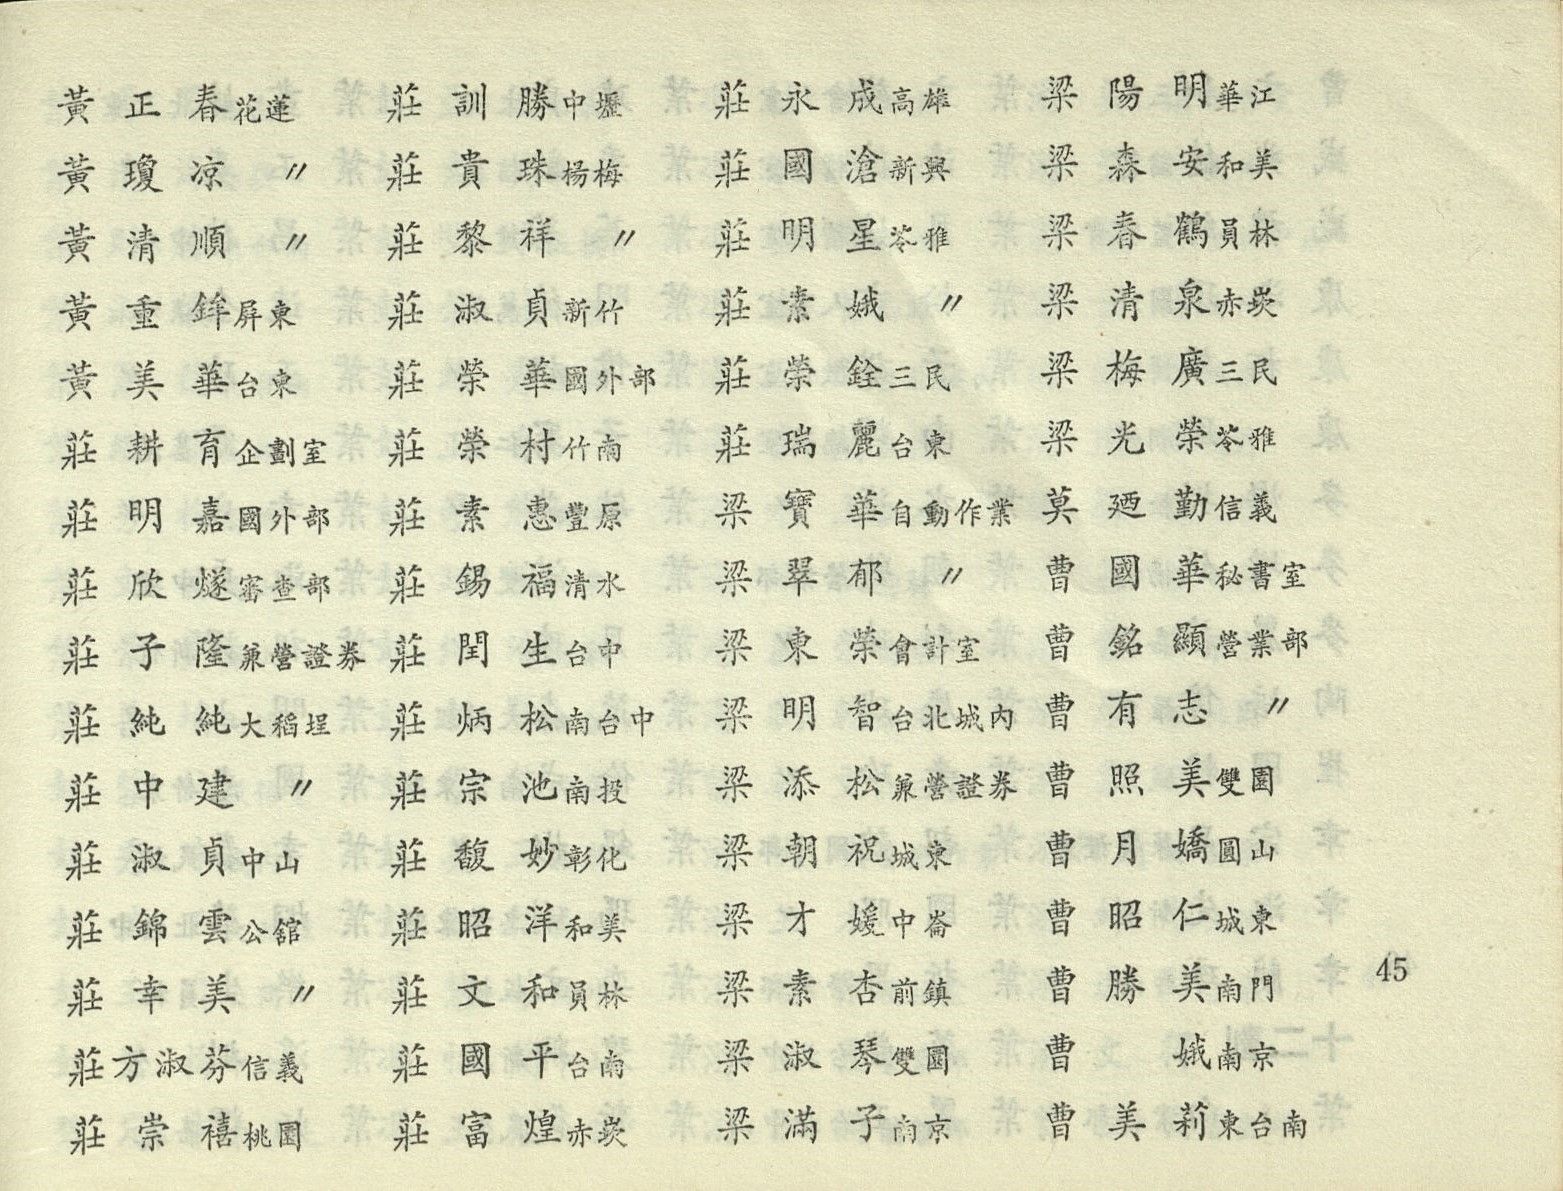 黃正春花蓮
黃瓊凉〃
黃清順〃
黃重鉾屏東
黃美華台東
莊耕育企劃室
莊明嘉國外部
莊欣燧審查部
莊子隆兼營證券
莊純純大稻埕
莊中建〃
莊淑貞中山
莊錦雲公舘
莊幸美〃
莊方淑芬信義
莊崇禧桃園
莊訓勝中壢
莊貴珠楊梅
莊黎祥〃
莊淑貞新竹
莊榮華國外部
莊榮村竹南
莊素惠豐原
莊錫福清水
莊閏生台中
莊炳松南台中
莊宗池南投
莊馥妙彰化
莊昭洋和美
莊文和員林
莊國平台南
莊富煌赤崁
莊永成高雄
莊國滄新興
莊明星苓雅
莊素娥〃
莊崇銓三民
莊瑞麗台東
梁寶華自動作業
梁翠郁〃
梁東榮會計室
梁明智台北城內
梁添松兼營證券
梁朝祝城東
梁才媛中崙
梁素杏前鎮
梁淑琴雙園
梁滿子南京
梁陽明華江
梁森安和美
梁春鶴員林
梁清泉赤崁
梁梅廣三民
梁光榮苓雅
莫廼勤信義
曹國華秘書室
曹銘顯營業部
曹有志〃
曹照美雙園
曹月嬌圓山
曹昭仁城東
曹勝美南門
曹娥南京
曹美莉東台南
45